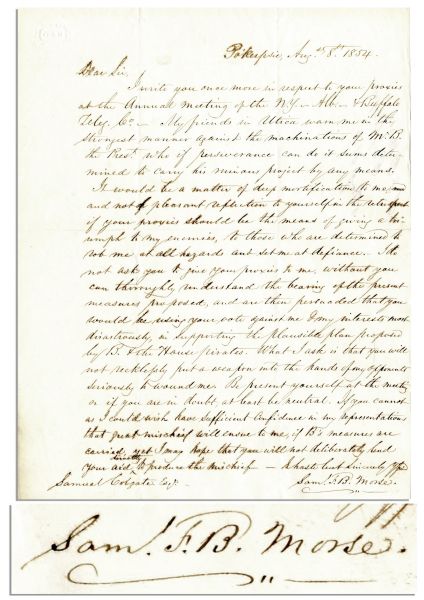 Pokeepsie, Aug. 8th 1854.
Dear Sir,
I write you once more in respect to your proxies
at the Annual meeting of the N.Y. - Alb - & Buffalo
Teleg. Co - My friends in Utica warn me in the
strongest manner against the machinations of Mr. B.
the Prest. who if perseverance can do it seems deter-
mined to carry his ruinous project by any means.
It would be a matter of deep mortification to me, and
and not of pleasant reflection to yourself in the retrospect
if your proxies should be the means of giving a tri-
umph to my enemies, to those who are determined to
rob me at all hazards and set me at defiance. I do
not ask you to give your proxies to me, without you
can thoroughly understand the bearing of the present
measures proposed, and are then persuaded that you
would be using your vote against me & my interests most
disastrously, in supporting the plausible plan proposed
by B. & the House pirates. What I ask is that you will
not recklessly put a weapon into the hands of my opponents
seriously to wound me. Be present yourself at the meeting
or if you are in doubt at least be neutral. If you cannot
as I could wish have sufficient confidence in my representations
that great mischief will ensue to me, if B's measures are
carried, yet I may hope that you will not deliberately lend
your aid directly to produce the mischief - In haste but sincerely Yrs
Samuel Colgate Esqr.
Saml. F. B. Morse.
Saml. F. B. Morse.